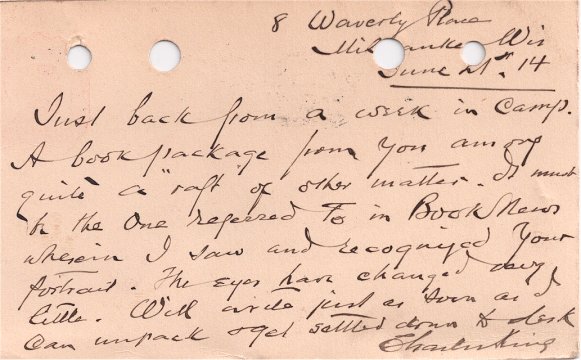 8 Waverly Place
Milwaukee Wis
June 21st. 14
Just back from a week in Camp.
A book package from you among
quite a "raft" of other matter. It must
be the one referred to in Book News
wherein I saw and recognized your
portrait. The eyes have changed very
little. Will write just as soon as I
can unpack & get settled down to desk
Charles King